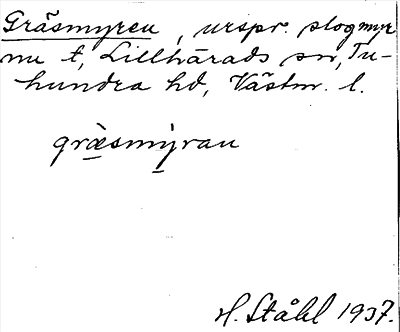 Gräsmyren, urspr. slogmyr
nu t, Lillhärads sn, Tu-
hundra hd, Västm. l.
græ̀smy̆ran
H. Ståhl 1937.